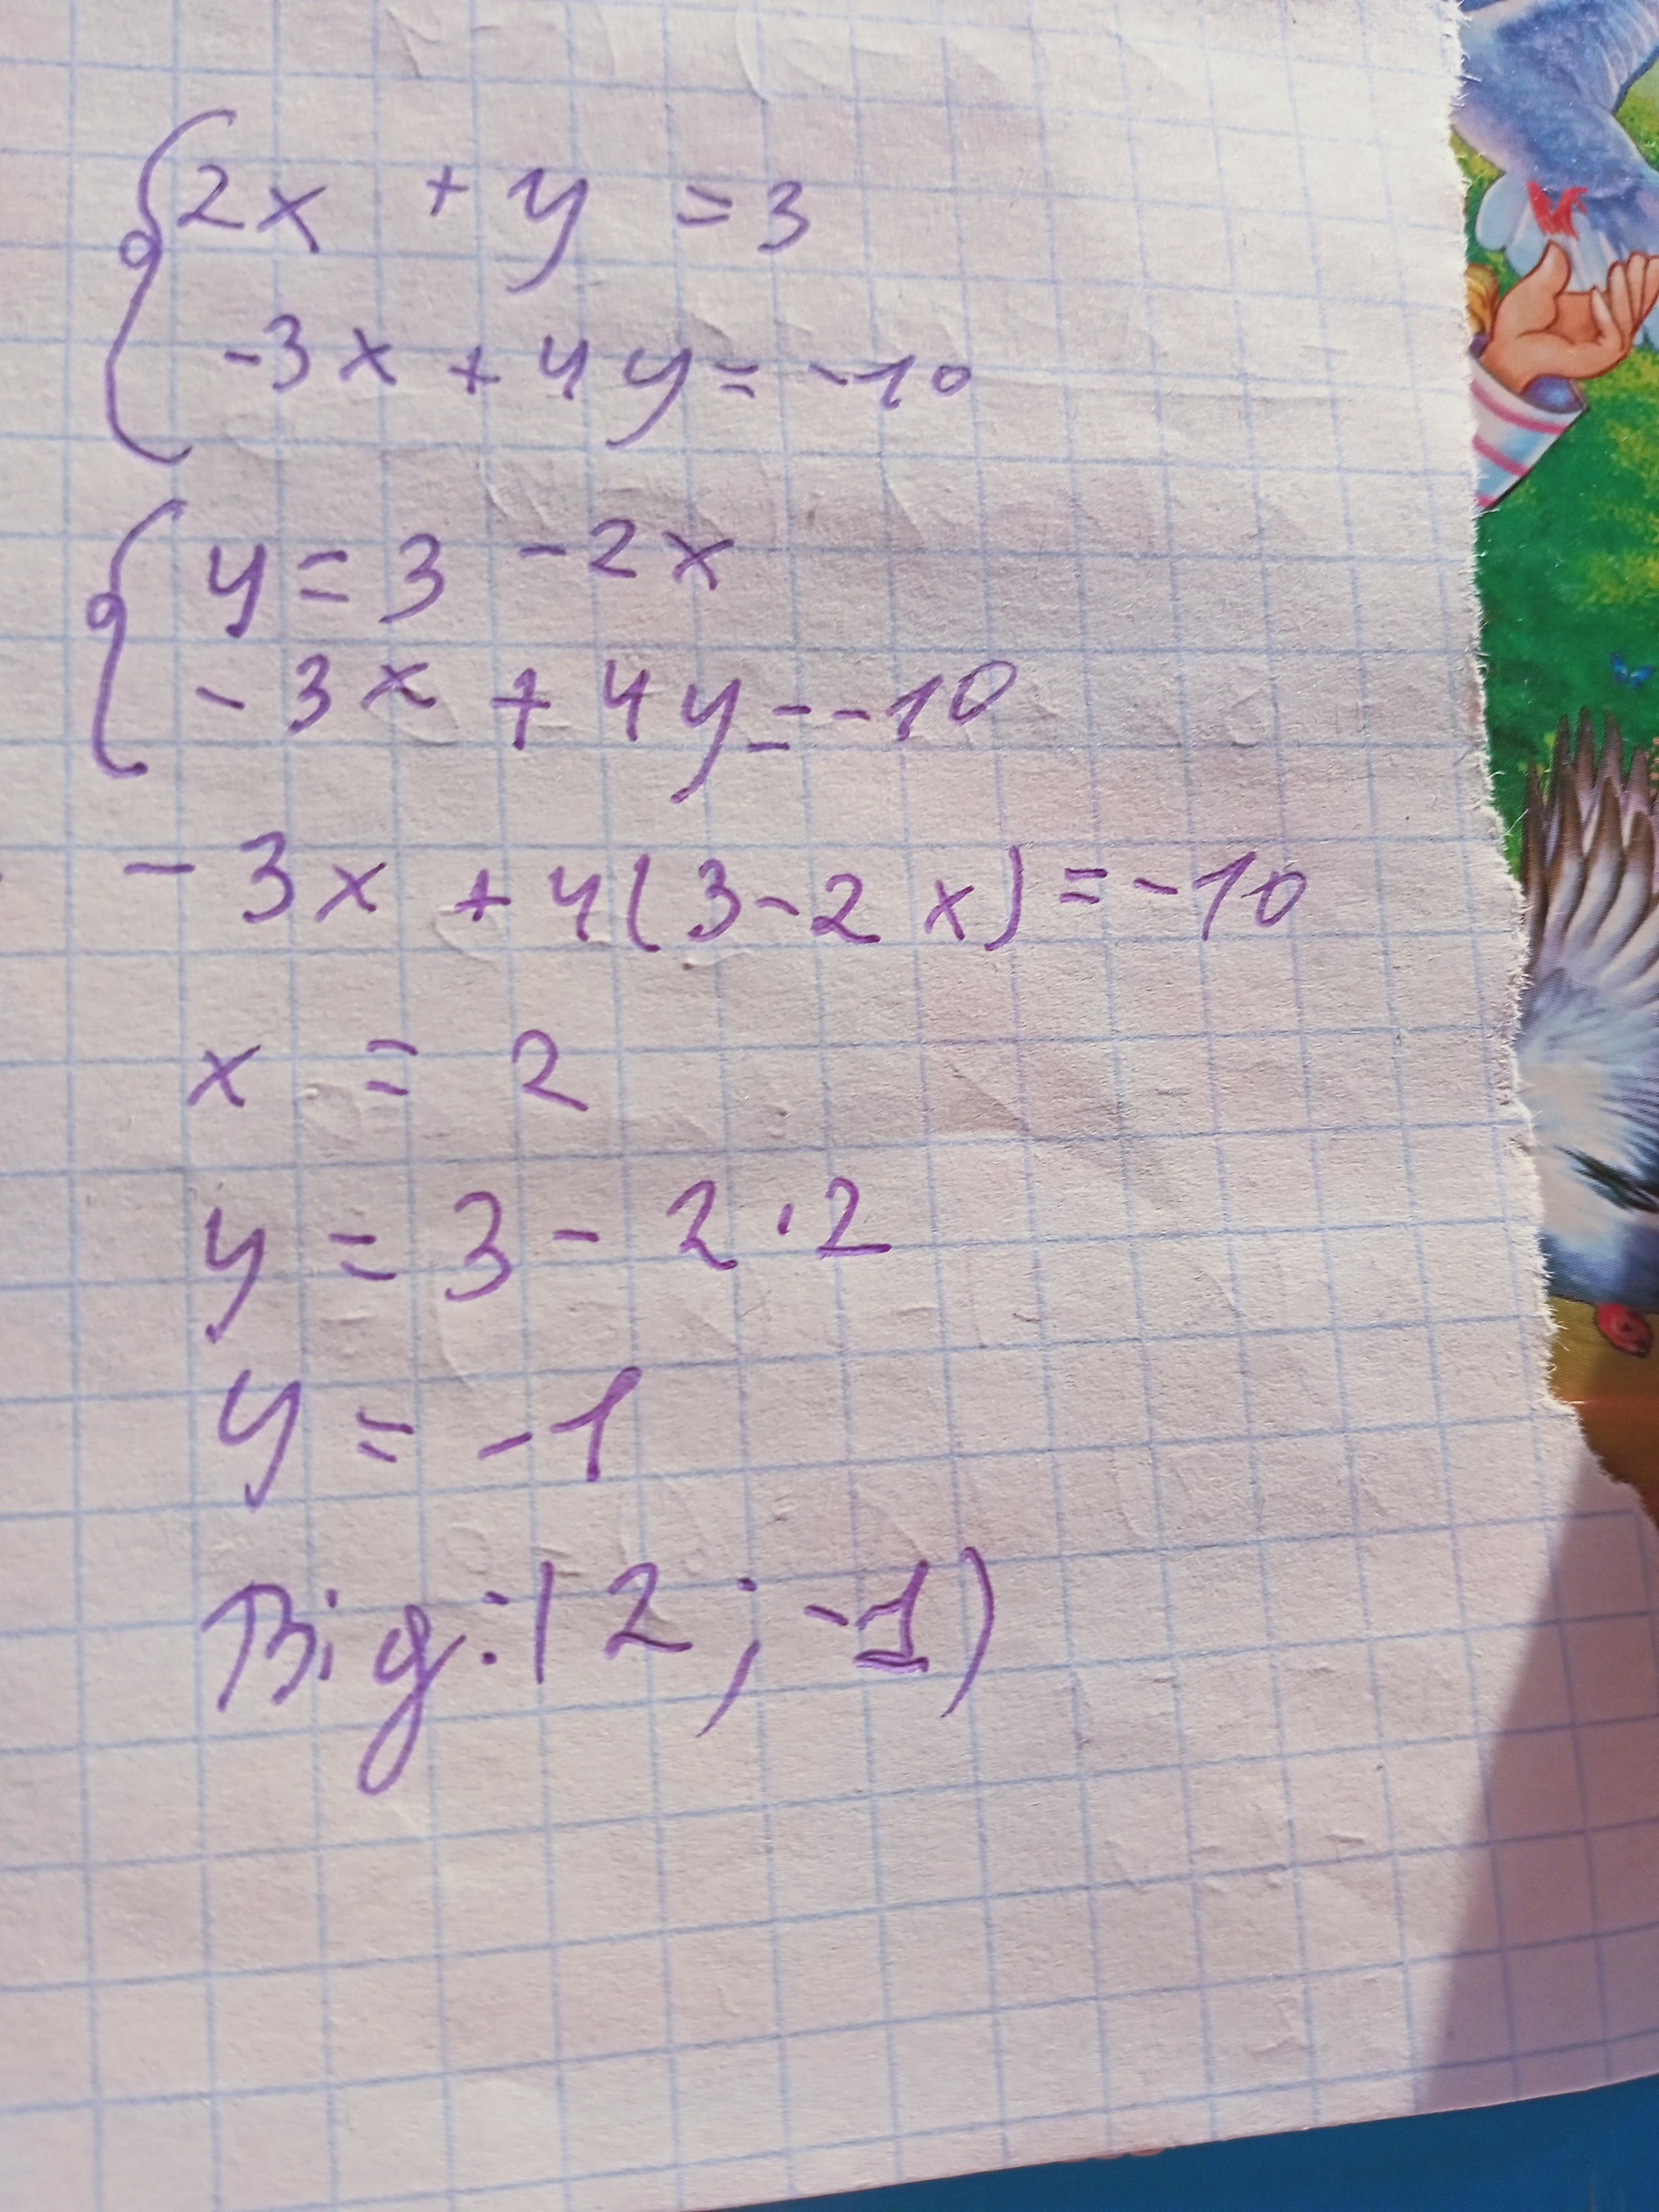 2x + y = 3
-3x + 4y = -10
y = 3 - 2x
- 3x + 4y = -10
- 3x + 4(3-2x) = -10
x = 2
y = 3 - 2 · 2
y = -1
Від:(2; -1)